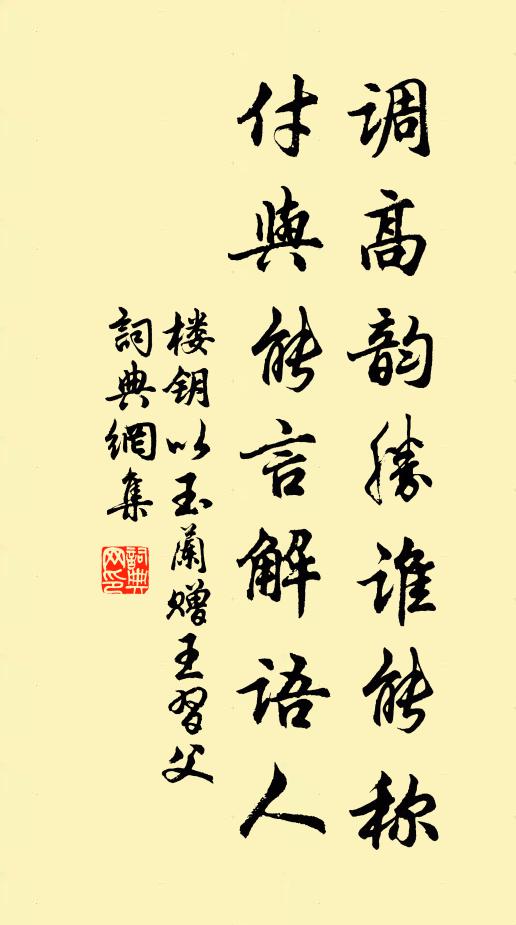 调高韵胜谁能称
付與能言解语人
楼钥以玉蘭赠王習父
詞典網集
詞典网印